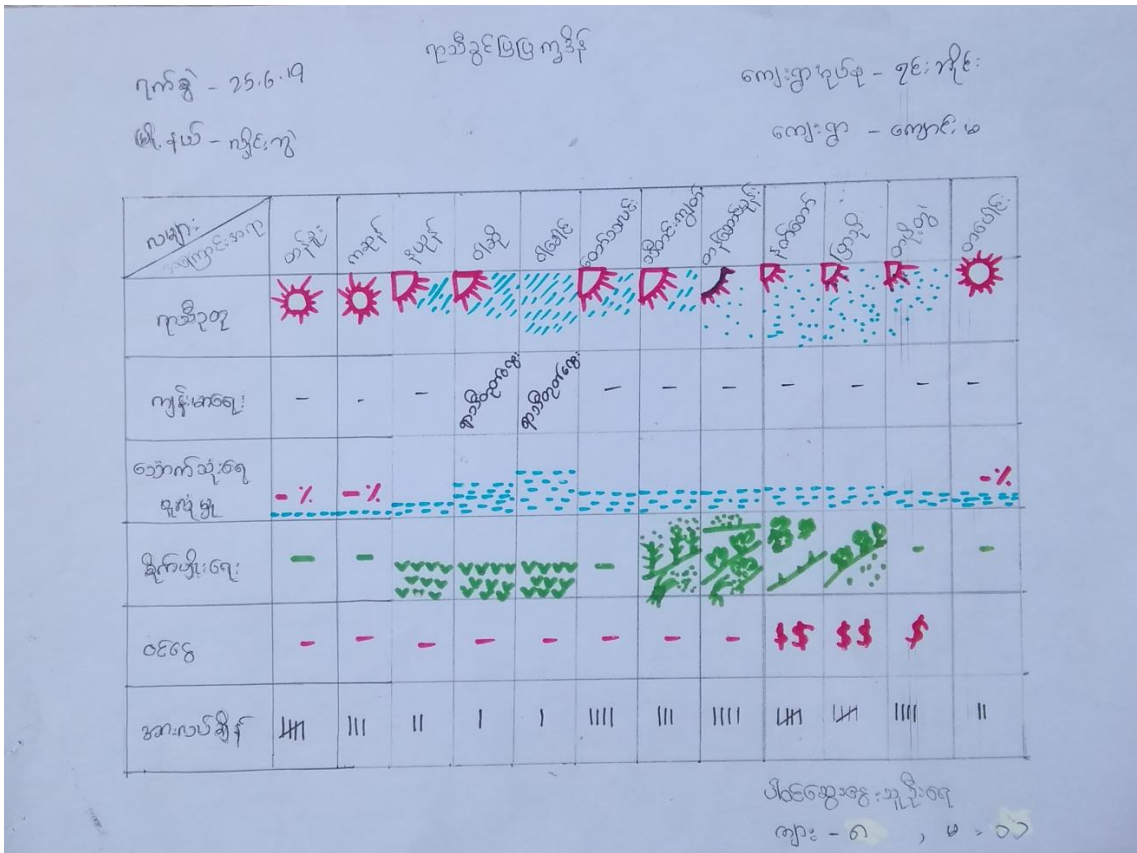 ရာသီခွင်ပြပြက္ခဒိန်
ရက်စွဲ - 25.6.19
ကျေးရွာအုပ်စု -
မြို့နယ် - လှိုင်းဘွဲ့
ကျေးရွာ - ကျောင်းမ
လများ
အကြောင်းအရာ
တန်ခူး ကဆုန် နယုန် ဝါဆို ဝါခေါင် တော်သလင်း သီတင်းကျွတ် တန်ဆောင်မုန်း နတ်တော် ပြာသို တပို့တွဲ တပေါင်း
ရာသီဥတု
ကျန်းမာရေး - - - - - - - - - -
သောက်သုံးရေ
ဖူလုံမှု
-% -% -%
စိုက်ပျိုးရေး - - - - -
ဝင်ငွေ - - - - - - - - $$ $$ $
အားလပ်ချိန်
ပါဝင်ဆွေးနွေးသူဦးရေ
ကျား - ၈ , မ - ၁၁